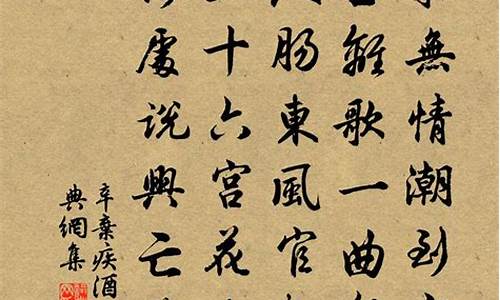 無情潮到
離歌一曲
腸東風官
十六宫花
處説興亡
辛棄疾酒
典網集